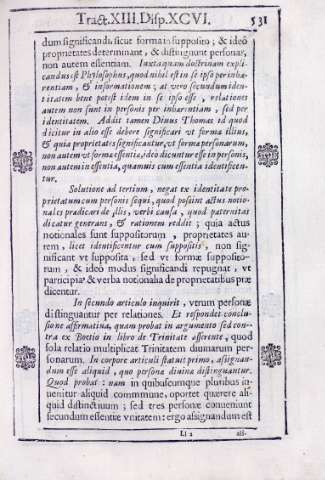 Tract. XIII. Disp. XCVI. 531
dum significandi sicut forma in supposito; & ideò
proprietates determinant, & distinguunt personas,
non autem essentiam. Iuxta quam doctrinam expli-
candus est Phylosophus, quod nihil est in se ipso per inhæ-
rentiam, & informationem; at vero secundum iden-
titatem bene potest idem in se ipso esse, relationes
autem non sunt in personis per inhærentiam, sed per
identitatem. Addit tamen Diuus Thomas id quod
dicitur in alio esse debere significari vt forma illius,
& quia proprietates significantur, vt forma personarum,
non autem vt forma essentiæ, ideo dicuntur esse in personis,
non autem in essentia, quamuis cum essentia identificen-
tur.
Solutione ad tertium, negat ex identitate pro-
prietatum cum personis sequi, quod possint actus notio-
nales prædicari de illis, verbi causa, quod paternitas
dicatur generans, & rationem reddit; quia actus
notionales sunt suppositorum, proprietates au-
tem, licet identificentur cum suppositis, non sig-
nificant vt supposita, sed vt formæ supposito-
rum, & ideò modus significandi repugnat, vt
participia & verba notionalia de proprietatibus præ
dicentur.
In secundo articulo inquirit, vtrum personæ
distinguantur per relationes. Et respondet conclu-
sione affirmatiua, quam probat in argumento sed con-
tra ex Boetio in libro de Trinitate asserente, quod
sola relatio multiplicat Trinitatem diuinarum per-
sonarum. In corpore articuli statuit primo, assignan-
dum esse aliquid, quo personæ diuinæ distinguantur.
Quod probat: nam in quibuscumque pluribus in-
uenitur aliquid commmune, oportet quærere ali-
quid distinctiuum; sed tres personæ conueniunt
secundum essentiæ vnitatem: ergo assignandum est
Ll 2 ali-